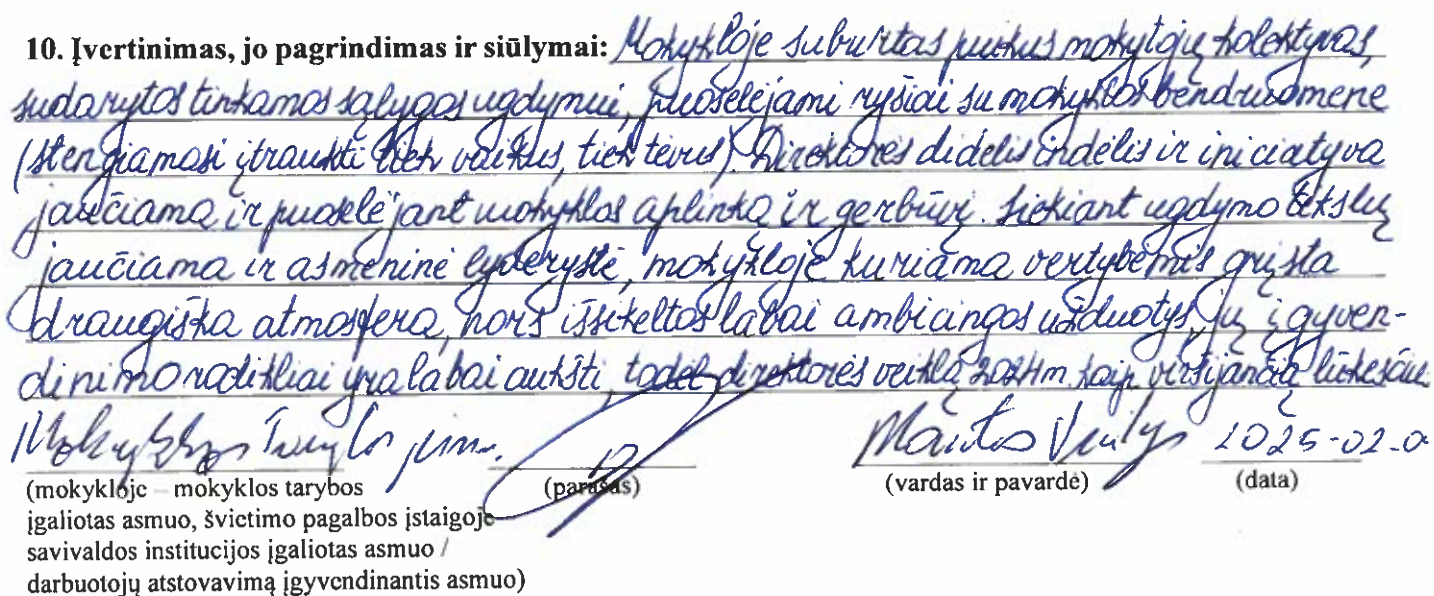 10. Įvertinimas, jo pagrindimas ir siūlymai: Mokykloje suburtas puikus mokytojų kolektyvas,
sudarytos tinkamos sąlygos ugdymui, puoselėjami ryšiai su mokyklos bendruomene
(stengiamasi įtraukti tiek vaikus, tiek tėvus). Direktorės didelis indėlis ir iniciatyva
jaučiama ir puoselėjant mokyklos aplinką ir gerbūvį. Siekiant ugdymo tikslų
jaučiama ir asmeninė lyderystė, mokykloje kuriama vertybėmis grįsta
draugiška atmosfera, nors išsikeltos labai ambicingos užduotys, jų įgyven-
dinimo rodikliai yra labai aukšti, todėl direktorės veiklą 2024m. kaip viršijančią lūkesčius
Mokyklos Tarybos pirm. 2025-02-0
(mokykloje – mokyklos tarybos (parašas) (vardas ir pavardė) (data)
įgaliotas asmuo, švietimo pagalbos įstaigoje
savivaldos institucijos įgaliotas asmuo /
darbuotojų atstovavimą įgyvendinantis asmuo)